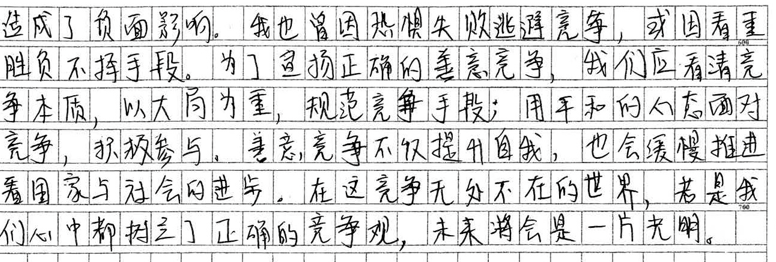 造成了负面影响。我也曾因恐惧失败逃避竞争，或因看重
胜负不择手段。为了宣扬正确的善意竞争，我们应看清竞
争本质，以大局为重，规范竞争手段；用平和的心态面对
竞争，积极参与。善意竞争不仅提升自我，也会缓慢推进
着国家与社会的进步。在这竞争无处不在的世界，若是我
们心中都树立了正确的竞争观，未来将会是一片光明。